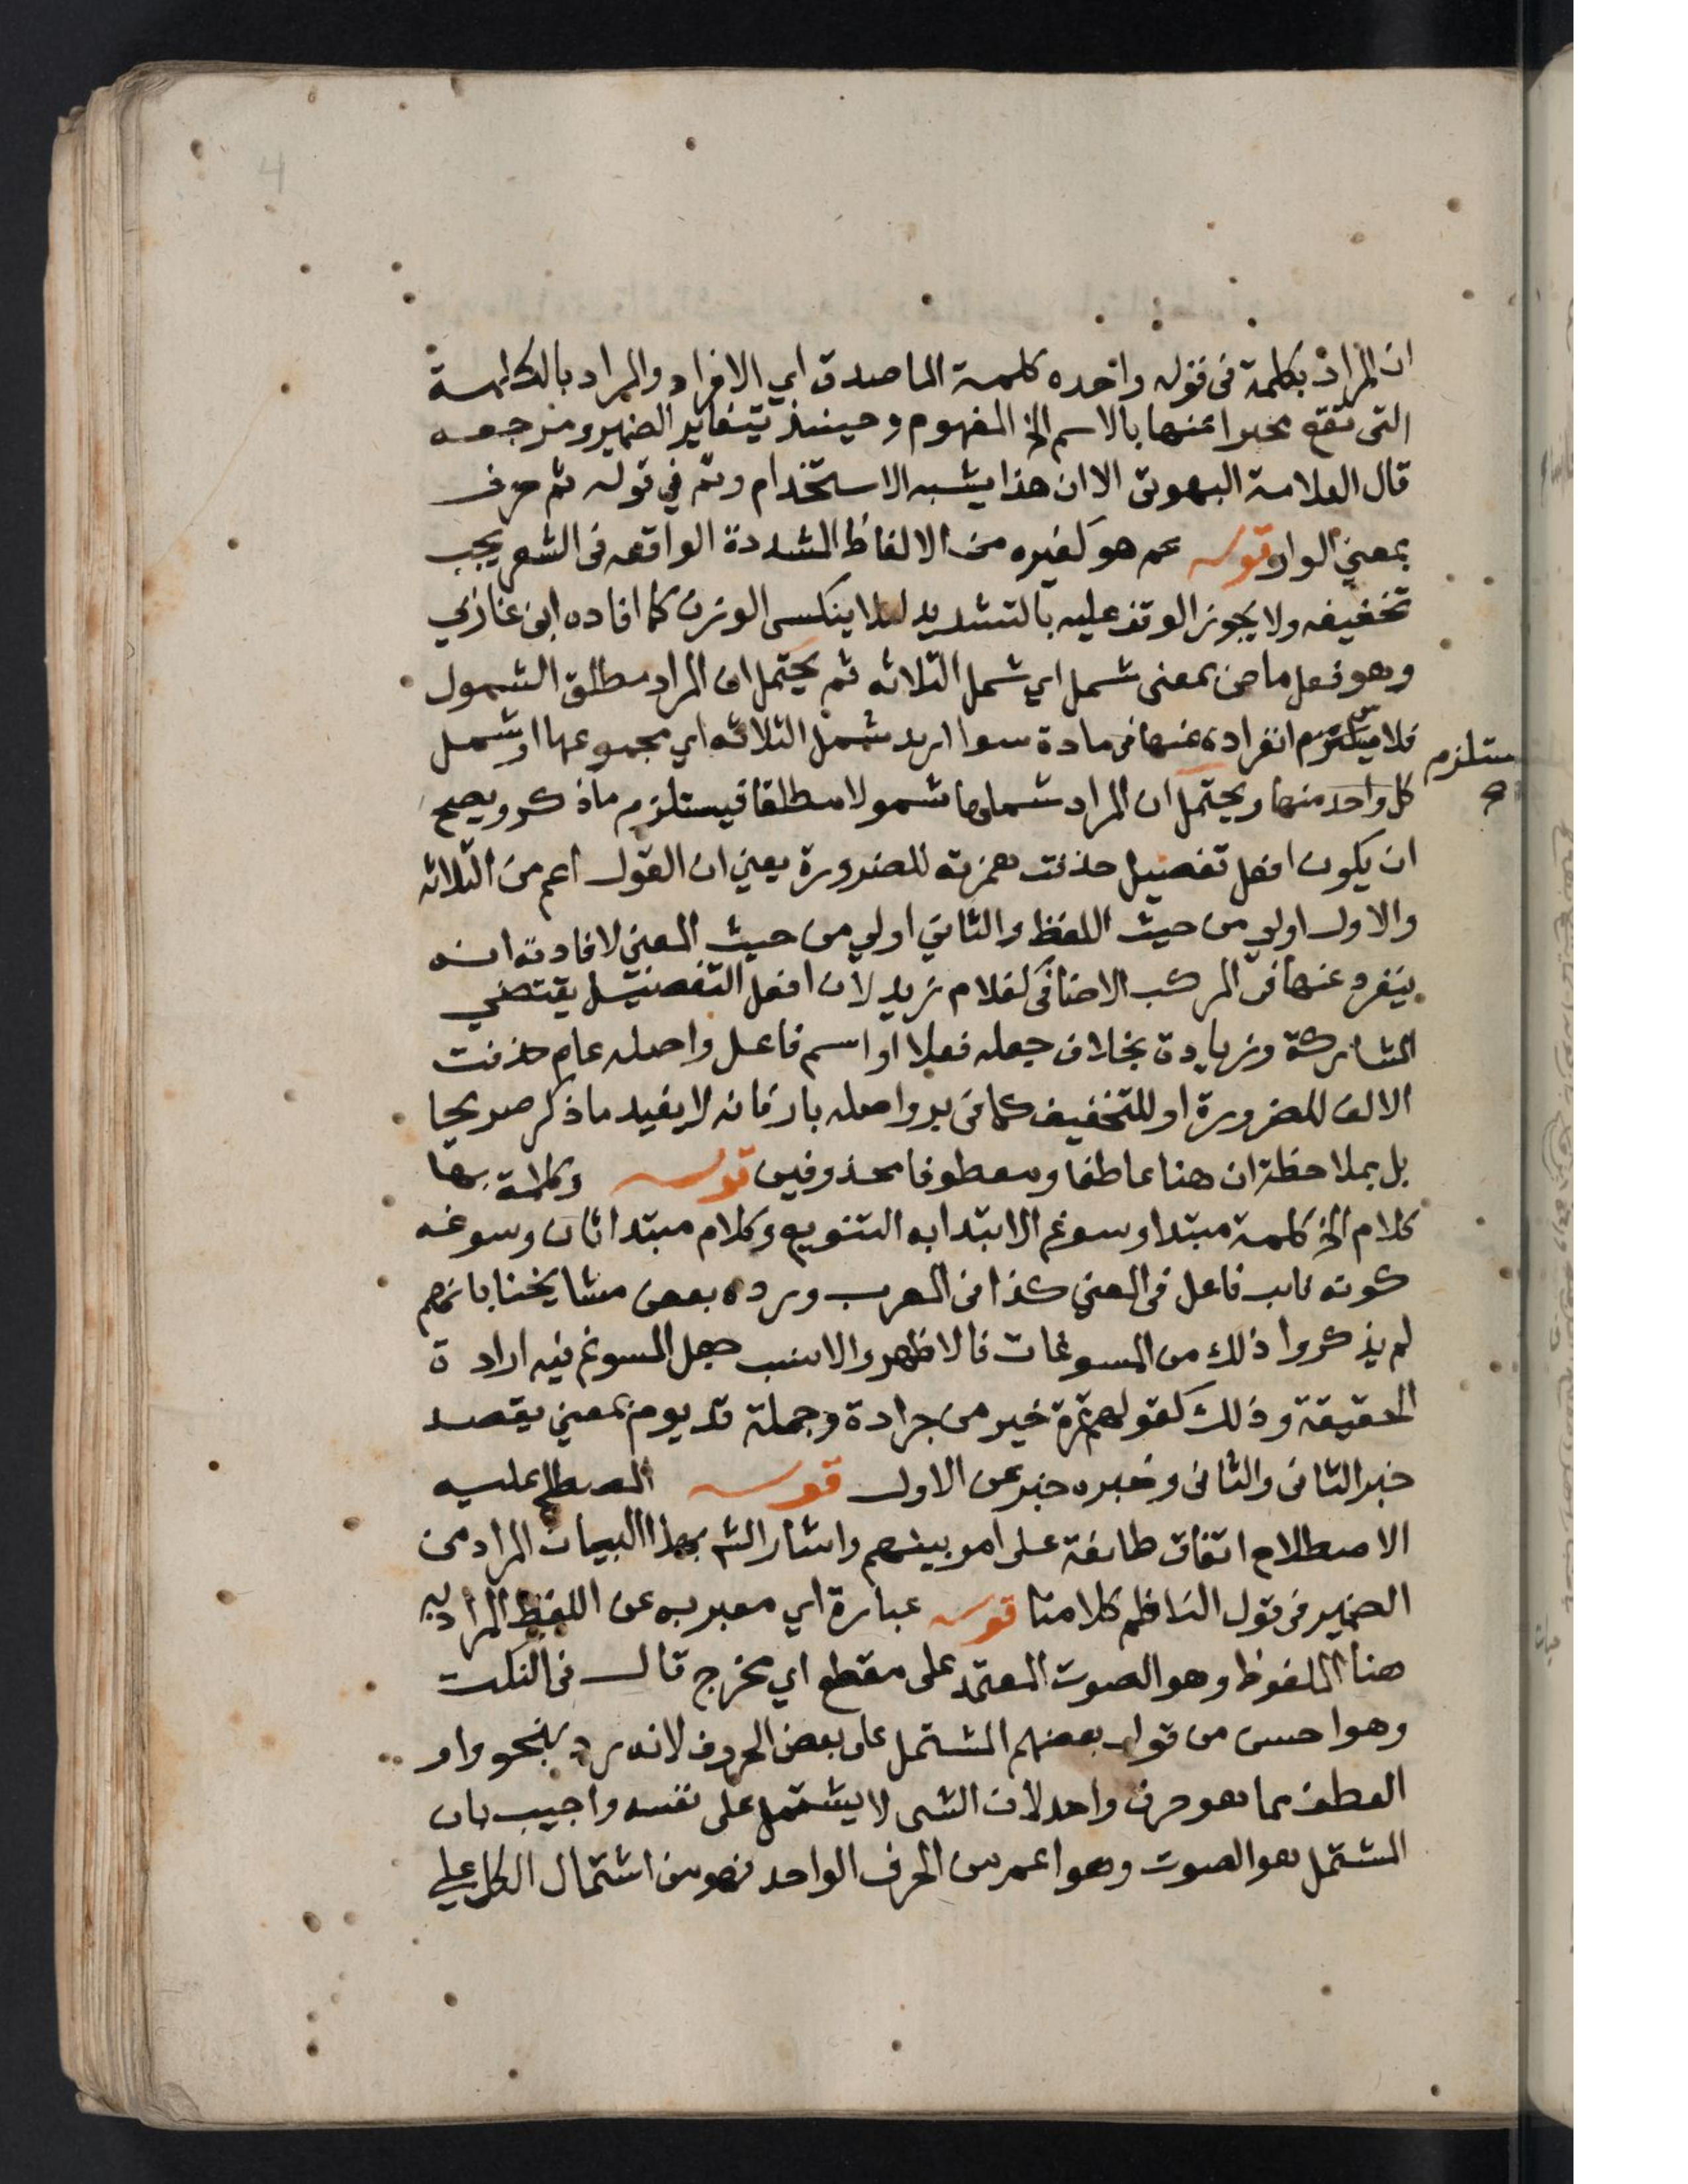 ان المراد بكلمة فى قوله واحده كلمة الماصدق اي الافراد والمراد بالكلمة
التى تقع مخبرا عنها بالاسم الخ المفهوم وحينئذ يتغاير الضمير ومرجعه
قال العلامة البهوتى الا ان هذا يشبه الاستخدام وثم في قوله ثم حرف
بمعنى الواو قوله عم هو كغيره من الالفاظ المشددة الواقعه فى الشعر يجب
تخفيفه ولا يجوز الوقف عليه بالتشديد لئلا ينكسر الوزن كما افاده ابن غازي
وهو فعل ماض بمعنى شمل اي شمل الثلاثه ثم يحتمل ان المراد مطلق الشمول
فلا يستلزم انفراده عنها فى مادة سوا اريد شمل الثلاثه اي مجموعها او شمل
يستلزم
كل واحد منها ويحتمل ان المراد شملها شمولا مطلقا فيستلزم ما ذكر ويصح
ان يكون افعل تفضيل حذفت همزته للضرورة يعني ان القول اعم من الثلاثه
والاول اولي من حيث اللفظ والثاني اولي من حيث المعنى لافادته انه
ينفرد عنها فى المركب الاضافى كغلام زيد لان افعل التفضيل يقتضي
المشاركة وزيادة بخلاف جعله فعلا او اسم فاعل واصله عام حذفت
الالف للضرورة او للتخفيف كما فى بر واصله بار فانه لا يفيد ما ذكر صريحا
بل بملاحظة ان هنا عاطفا ومعطوفا محذوفين قوله وكلمة بها
كلام الخ كلمة مبتدا وسوغ الابتدا به التنويع وكلام مبتدا ثان وسوغه
كونه نايب فاعل فى المعني كذا فى المعرب ورده بعض مشايخنا بانهم
لم يذكروا ذلك من المسوغات فالاظهر والانسب جعل المسوغ فيه ارادة
الحقيقة وذلك كقولهم تمرة خير من جرادة وجملة قد يوم بمعني يقصد
خبر الثانى والثانى وخبره خبر عن الاول قوله المصطلح عليه
الاصطلاح اتفاق طائفة على امر بينهم واشار الش بهذا البيان المراد من
الضمير فى قول الناظم كلامنا قوله عبارة اي معبر به عن اللفظ المراد به
هنا الملفوظ وهو الصوت المعتمد على مقطع اي مخرج قال فى النكت
وهو احسن من قول بعضهم المشتمل على بعض الحروف لانه يرد بنحو واو
العطف مما هو حرف واحد لان الشى لا يشتمل على نفسه واجيب بان
المشتمل هو الصوت وهو اعم من الحرف الواحد فهو من اشتمال الكل على